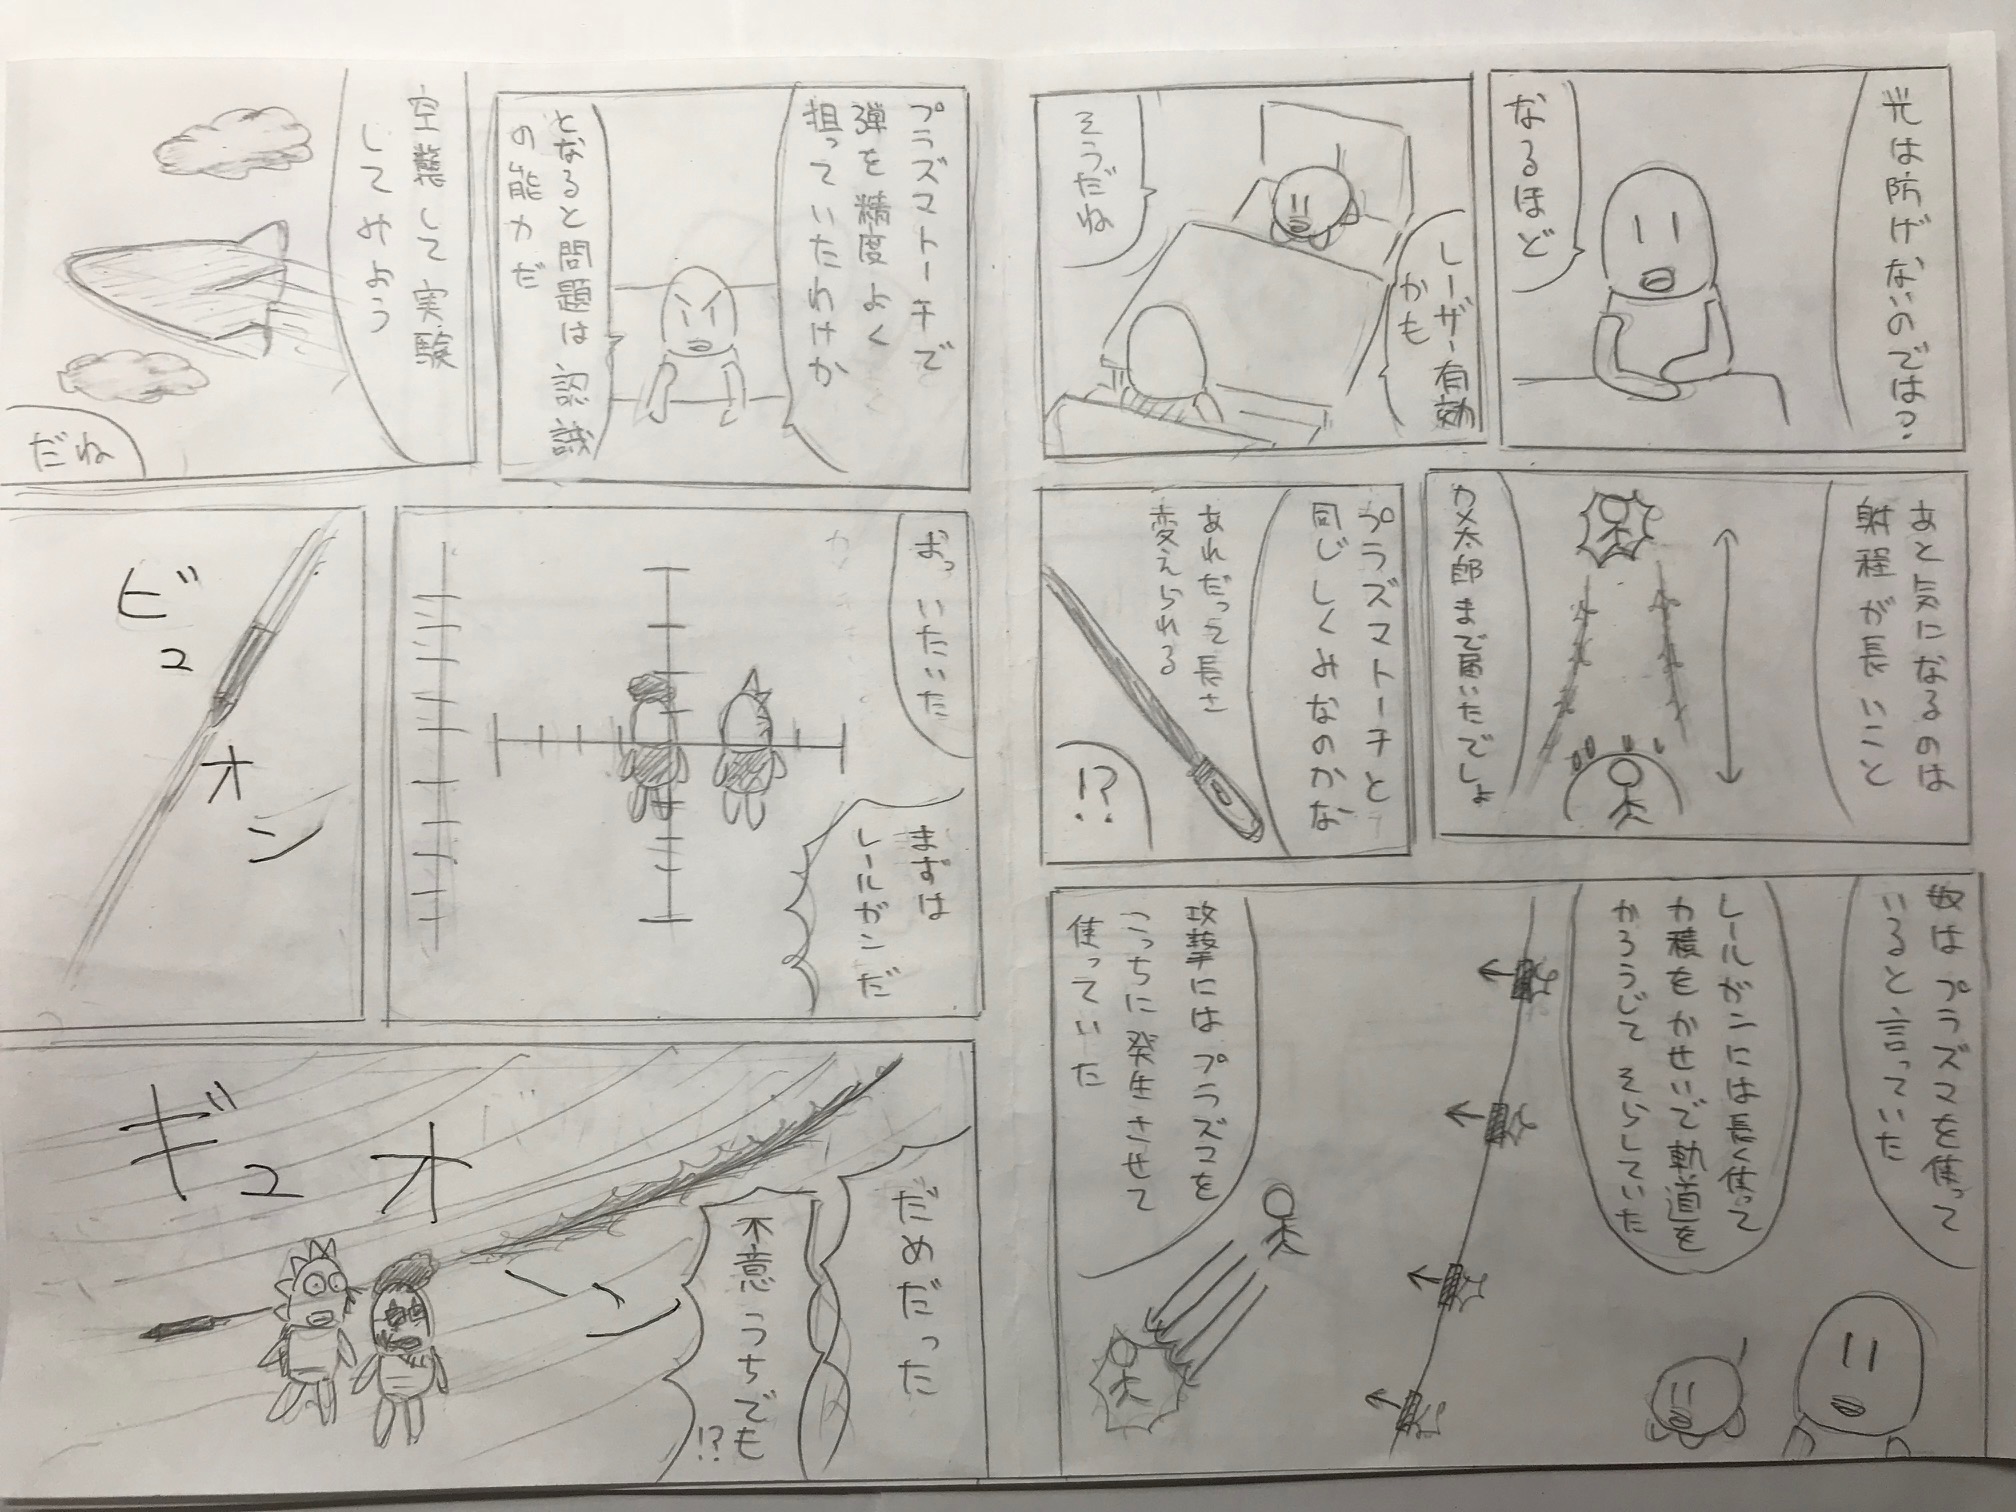 光は防げないのでは?
なるほど
レーザー有効
かも
そうだね
あと気になるのは
射程が長いこと
カメ太郎まで届いたでしょ
プラズマトーチと
同じしくみなのかな
あれだって長さ
変えられる
!?
奴はプラズマを使って
いると言っていた
レールガンには長く使って
力積をかせいで軌道を
かろうじてそらしていた
攻撃にはプラズマを
こっちに発生させて
使っていた
プラズマトーチで
弾を精度よく
狙っていたわけか
となると問題は認識
の能力だ
空襲して実験
してみよう
だね
おっいたいた
まずは
レールガンだ
ビュオン
だめだった
不意うちでも
!?
ギュオーン